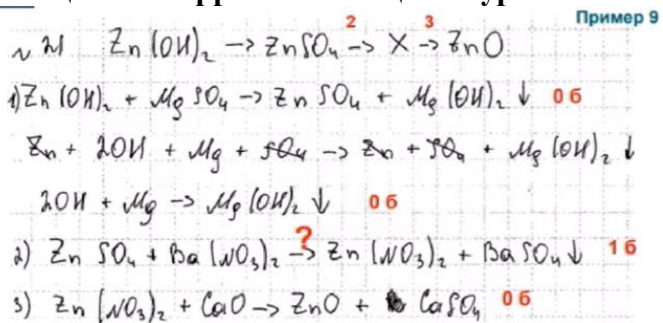 Пример 9
2 3
№ 21 Zn(OH)₂ → ZnSO₄ → X → ZnO
1) Zn(OH)₂ + MgSO₄ → ZnSO₄ + Mg(OH)₂ ↓ 0 б
Zn + 2OH + Mg + SO₄ → Zn + SO₄ + Mg(OH)₂ ↓
2OH + Mg → Mg(OH)₂ ↓ 0 б
?
2) ZnSO₄ + Ba(NO₃)₂ → Zn(NO₃)₂ + BaSO₄ ↓ 1 б
3) Zn(NO₃)₂ + CaO → ZnO + CaSO₄ 0 б